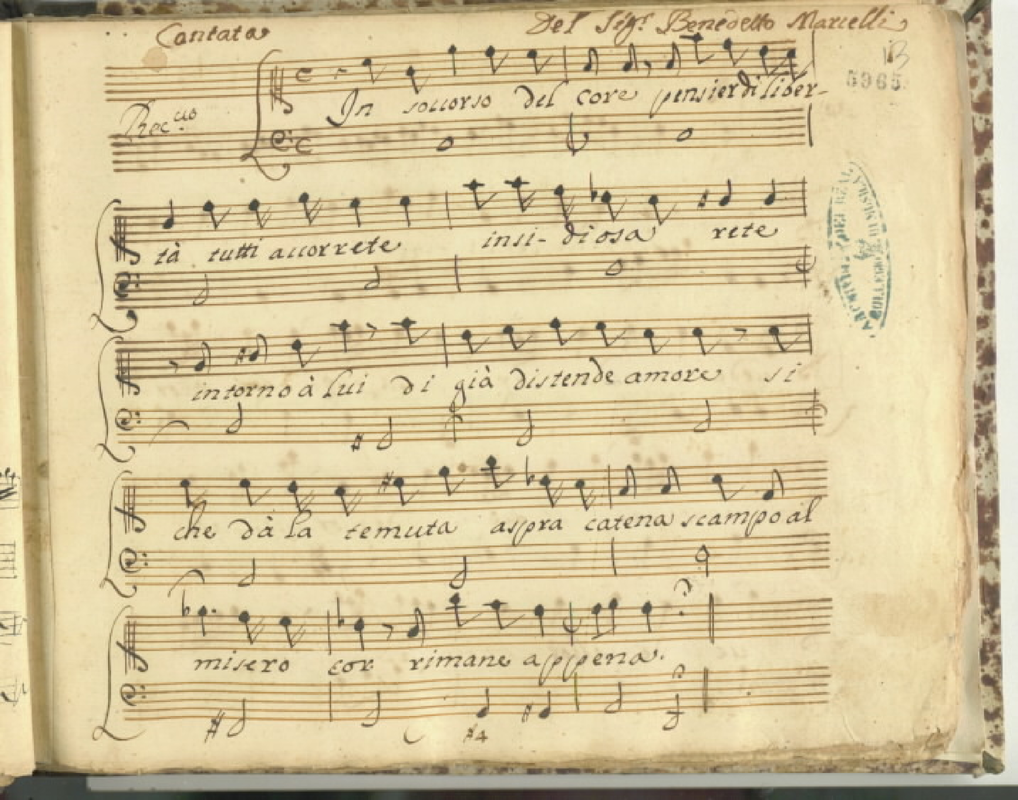 Cantata Del Sig.r Benedetto Marcelli
13
5965
In soccorso del core pensier di liber-
Rec.uo
tà tutti accorrete insi-diosa rete
intorno à lui di già distende amore si
che dà la temuta aspra catena scampo al
misero cor rimane appena.
#4